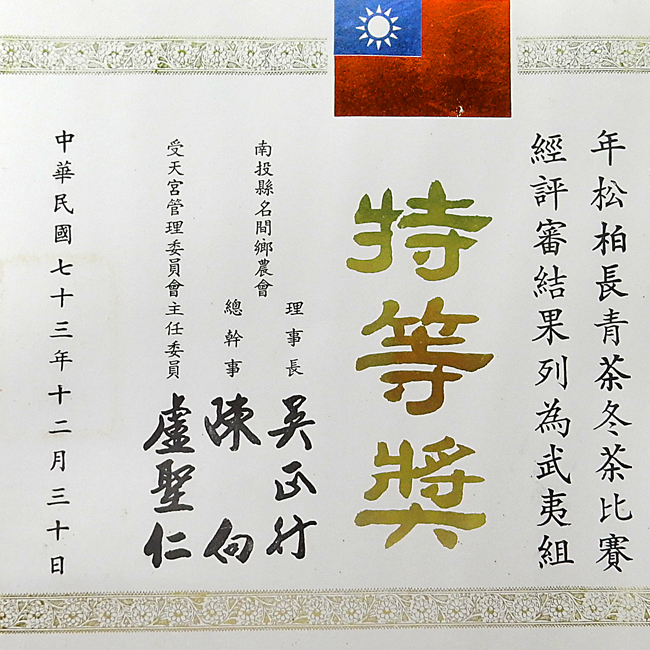 年松柏長青茶冬茶比賽
經評審結果列為武夷組
特等獎
南投縣名間鄉農會
理事長 吳正行
總幹事 陳向
受天宮管理委員會主任委員 盧聖仁
中華民國七十三年十二月三十日